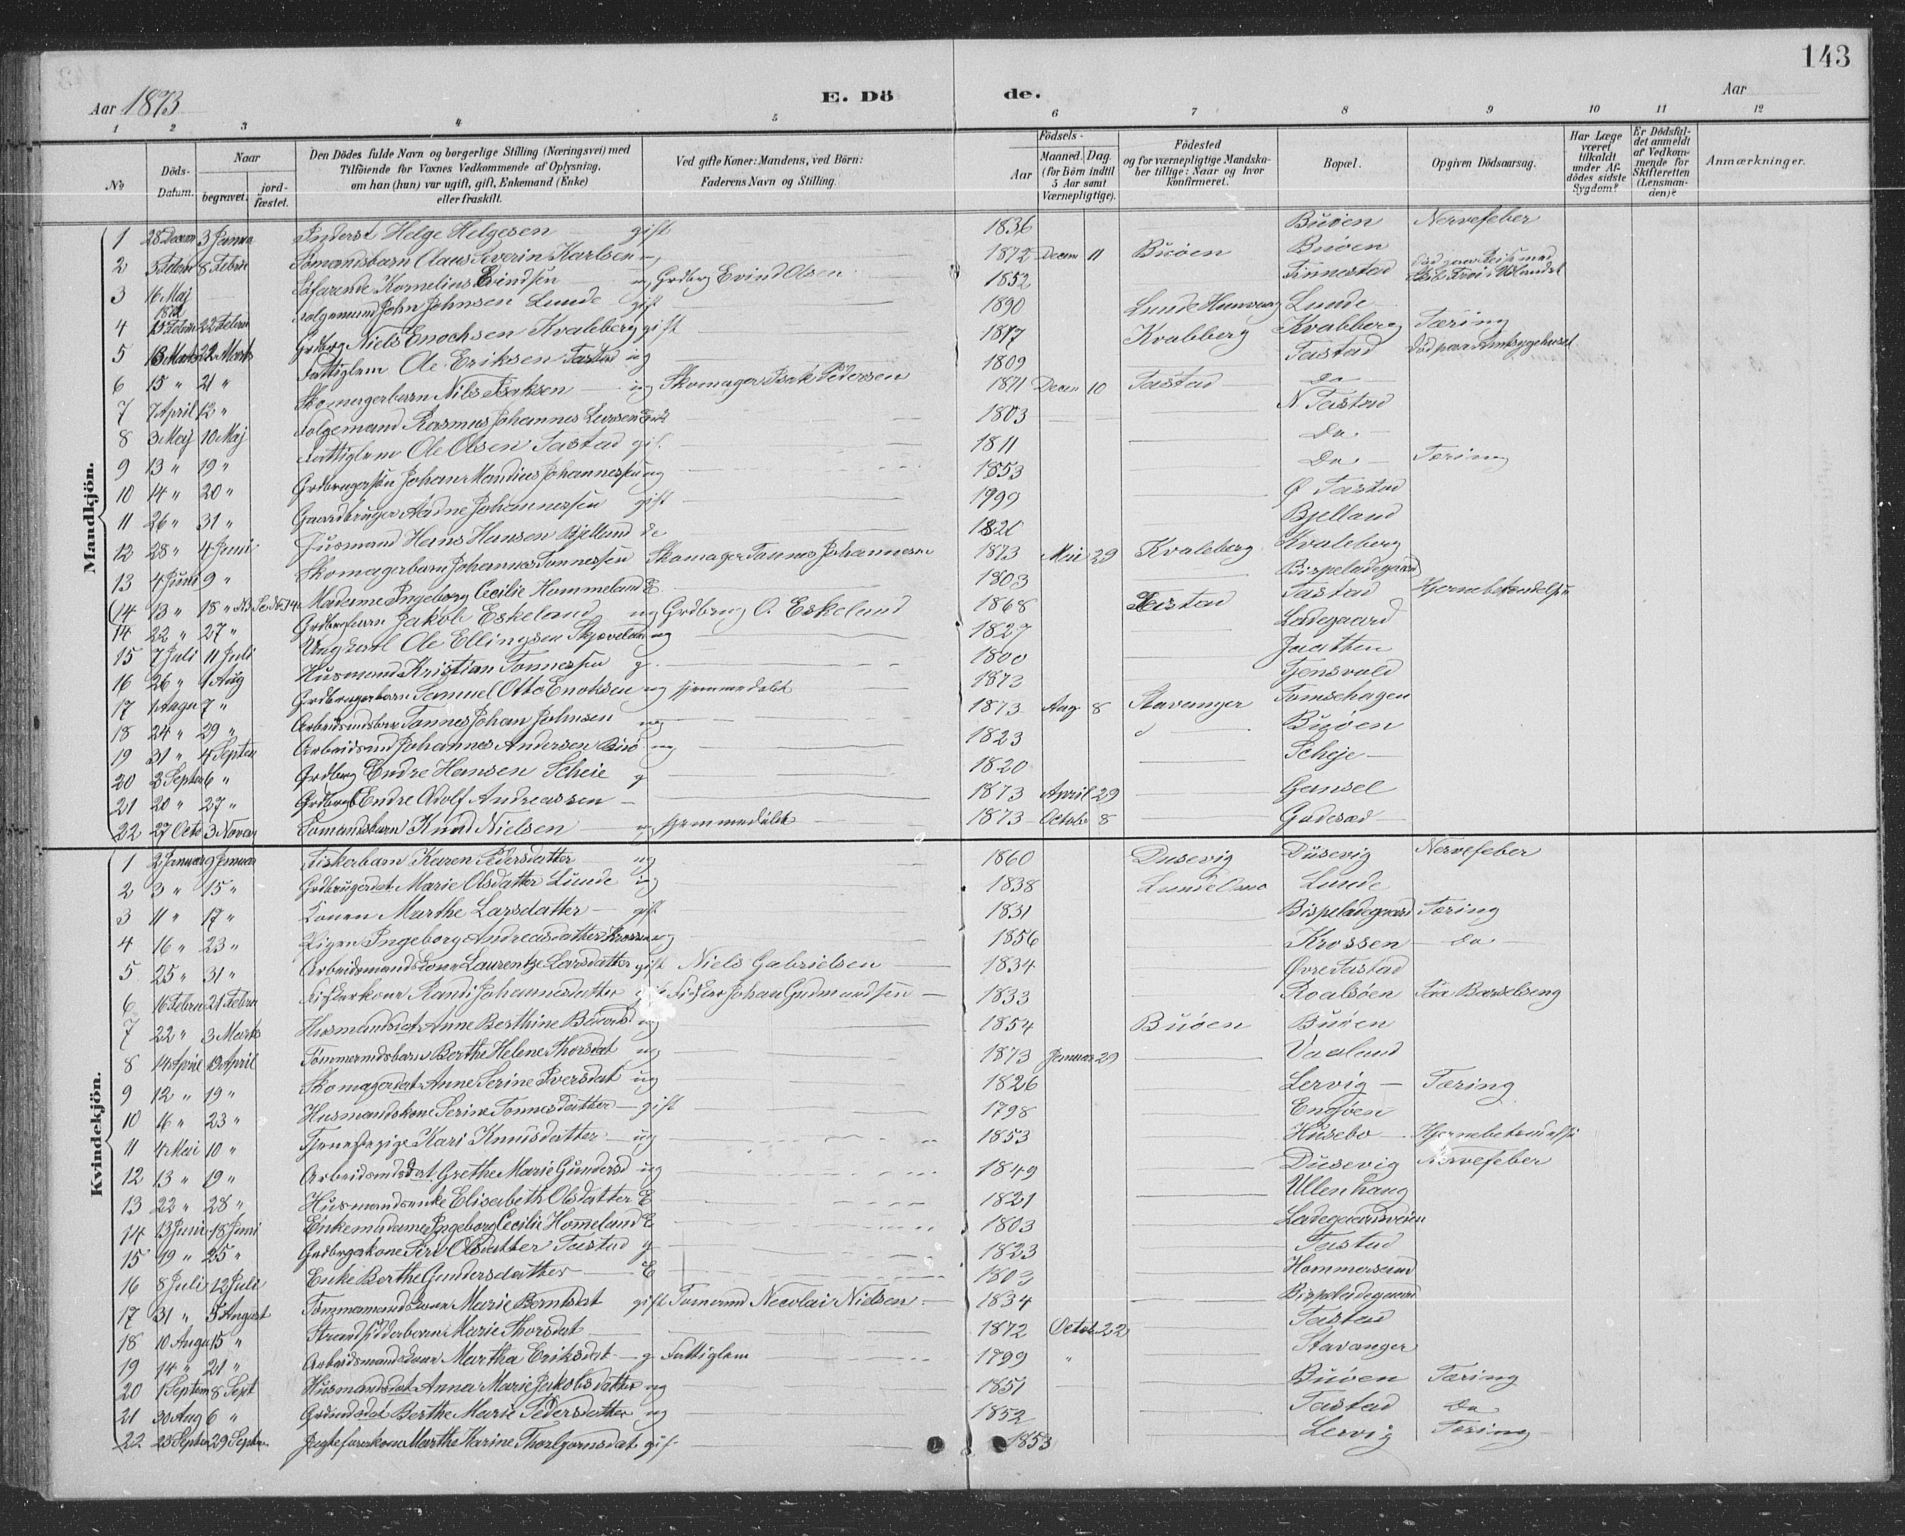 143
Aar 1873 E. Dö de. Aar
1 2 3 4 5 6 7 8 9 10 11 12
No Döds-Datum. Naar begravet. jord-fæstet. Den Dödes fulde Navn og borgerlige Stilling (Næringsvei) med Tilföiende for Voxnes Vedkommende af Oplysning, om han (hun) var ugift, gift, Enkemand (Enke) eller fraskilt. Ved gifte Koner: Mandens, ved Börn: Faderens Navn og Stilling. Födsels- Aar Maaned. Dag. (for Börn indtil 5 Aar samt Værnepligtige). Födested og for værnepligtige Mandska-ber tillige: Naar og hvor konfirmeret. Bopæl. Opgiven Dödsaarsag. Har Læge været tilkaldt under Af-dödes sidste Sygdom? Er Dödsfal-det anmeldt af Vedkom-mende for Skifteretten (Lensman-den)? Anmærkninger.
Mandkjön.
1 28 Decem 3 Janua Helge Helgesen gift 1836 Buöen Nervefeber
2 3 Febru 8 Febru Sömandsbarn Claus Severin Karlsen 1872 Decem 11 Buöen Buöen
3 16 Maj 1872 Söfarende Kornelius Eivindsen ug Grdbrg Evind Olsen 1852 Tinnestad
4 15 Febru 22 Febru Folgemand John Johnsen Lunde gift 1890 Lunde Lunde
5 13 Marts 22 Marts Grdbrg Niels Enochsen Kvaleberg gift 1817 Kvalberg Kvalberg Tæring
6 15 " 21 " Fattiglem Ole Eriksen Tastad ug 1809 Tastad Död paa Amtssygehuset
7 7 April 12 " Skomagerbarn Nils Isaksen ug Skomager Isak Pedersen 1871 Decem 10 Tastad Do
8 3 Maj 10 Maj Folgemand Rasmus Johannes Larsen 1803 N Tastad
9 13 " 19 " Fattiglem Ole Olsen Tastad gif. 1811 Do
10 14 " 20 " Grdbrugersön Johan Mandius Johannessen ug 1853 Do Tæring
11 26 " 31 " Gaardbruger Aadne Johannessen gift 1799 Ø Tastad
12 28 " 4 Juni Husmand Hans Hansen Bjelland do 1820 Bjelland
13 4 Juni 9 " Skomagerbarn Johannes Tonnessen Skomager Tonnes Johannesen 1873 Mai 29 Kvaleberg Kvaleberg
(14 13 " 18 " Madamme Ingeborg Cecilie Hommeland E 1803 Bispeladegaard
14 22 " 27 " Grdbrgbarn Jakob Eskeland ug Grdbrug O. Eskeland 1868 Tastad Tastad Hjernebetændelse
15 7 Juli 11 Juli Ungkarl Ole Ellingsen Skjævelan ug 1827 Ladegaard
16 26 " 1 Aug Husmand Kristian Tonnessen g. 1800 Jaatten
17 1 Augu 7 " Grdbrugerbarn Samuel Otto Enoksen ug hjemmedöbt 1873 Tjensvold
18 24 " 29 " Arbeidsmdsbarn Tonnes Johan Johnsen ug 1873 Aug 8 Stavanger Tomsehagen
19 31 " 4 Septem Arbeidsmd Johannes Andersen Buö ug 1823 Buöen
20 2 Septem 6 " Grdberg Endre Hansen Scheie g 1820 Scheje
21 20 " 27 " Grdbrg Endre Adolf Andreassen 1873 April 29 Gausel
22 27 Octo 3 Novem Sömandsbarn Knud Nielsen ug hjemmedöbt 1873 Octob 8 Godesæd
Kvindekjön.
1 2 Januar 9 Januar Fiskerbarn Karen Pedersdatter ug 1860 Dusevig Düsevig Nervefeber
2 3 " 15 " Grdbrugerdat Marie Olsdatter Lunde ug 1838 Lunde Lunde
3 11 " 17 " Konen Marthe Larsdatter gift 1831 Bispeladegaard Tæring
4 16 " 23 " Pigen Ingeborg Andreasdatter Krossen ug 1856 Krossen Do
5 25 " 31 " Arbeidsmands Kone Laurentze Larsdatter gift Niels Gabrielsen 1834 Øvre Tastad
6 16 Febru 21 Febru Fiskerkone Randi Johannesdatter Fisker Johan Gudmundsen 1833 Roalsöen Barselseng
7 22 " 3 Marts Husmandsdat Anne Berthine ug 1854 Buöen Buöen
8 14 April 19 April Tömmermdsbarn Berthe Helene Thorsdat ug 1873 Januar 29 Vaaland
9 12 " 19 " Skomagerdat Anne Serine Iversdat ug 1826 Lervig Tæring
10 16 " 23 " Husmandskone Serine Tonnesdatter gift 1798 Engöen
11 4 Mai 10 " Tjenestepige Kari Knudsdatter ug 1853 Husebo Hjernebetændelse
12 13 " 19 " Arbeidsmdsdat. Grethe Marie Gundersd ug 1849 Dusevig Nervefeber
13 22 " 28 " Husmandsenke Elisabeth Olsdatter E 1821 Ullenhaug
14 13 Juni 18 Juni Enkemadame Ingeborg Cecilie Homeland E 1803 Ladegaardsveien
15 19 " 25 " Grdbrgerkone Siri Olsdatter Tastad g 1823 Tastad
16 8 Juli 12 Juli Enke Berthe Gundersdatter E 1803 Hammersund
17 31 " 5 August Tömmermands Kone Marie Berntsdat gift Tömermd Necolai Nielsen 1834 Bispeladegaard
18 10 Augu 15 " Strandsidderbarn Marie Thorsdat 1872 Octob 22 Tastad
19 14 " 21 " Arbeidsmandskone Martha Eriksdat g Fattiglem 1799 " Stavanger
20 1 Septem 8 Sept Husmandsdat Anna Marie Jakobsdatter ug 1851 Buöen Tæring
21 30 Aug 6 " Grdmdsdat Berthe Marie Pedersdatter ug 1852 Tastad Do
22 23 Septem 29 Septem Jægtefarerkone Marthe Karine Thorbjornsdat gif. 1853 Lervig Tæring